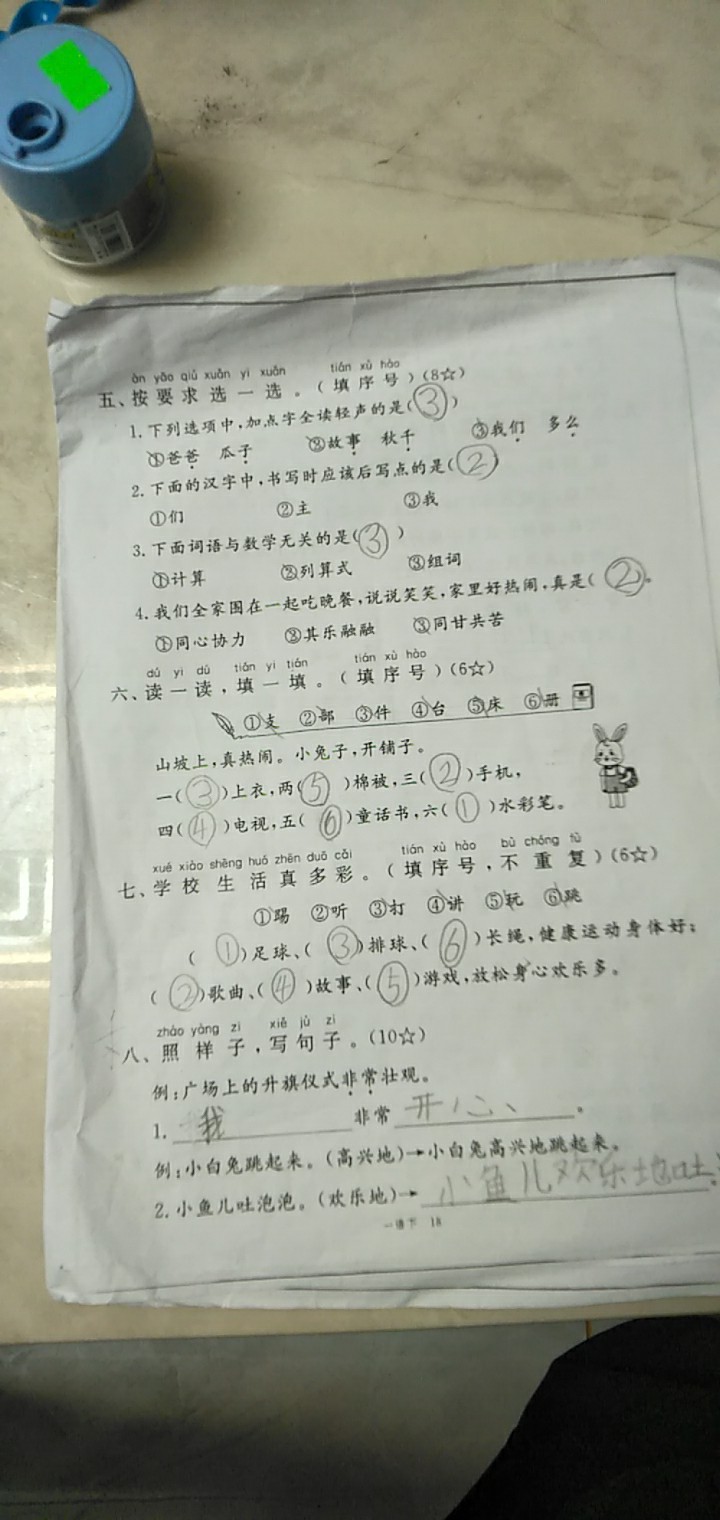 àn yāo qiú xuǎn yi xuǎn tián xù hào
五、按要求选一选。(填序号)(8☆)
1.下列选项中,加点字全读轻声的是(③)
①爸爸 瓜子 ②故事 秋千 ③我们 多么
2.下面的汉字中,书写时应该后写点的是(②)
①们 ②主 ③我
3.下面词语与数学无关的是(③)
①计算 ②列算式 ③组词
4.我们全家围在一起吃晚餐,说说笑笑,家里好热闹,真是(②)。
①同心协力 ②其乐融融 ③同甘共苦
dú yi dú tián yi tián tián xù hào
六、读一读,填一填。(填序号)(6☆)
①支 ②部 ③件 ④台 ⑤床 ⑥册
山坡上,真热闹。小兔子,开铺子。
一(③)上衣,两(⑤)棉被,三(②)手机,
四(④)电视,五(⑥)童话书,六(①)水彩笔。
xué xiào shēng huó zhēn duō cǎi tián xù hào bù chóng fù
七、学校生活真多彩。(填序号,不重复)(6☆)
①踢 ②听 ③打 ④讲 ⑤玩 ⑥跳
(①)足球、(③)排球、(⑥)长绳,健康运动身体好;
(②)歌曲、(④)故事、(⑤)游戏,放松身心欢乐多。
zhào yàng zi xiě jù zi
八、照样子,写句子。(10☆)
例:广场上的升旗仪式非常壮观。
1. 我 非常 开心、。
例:小白兔跳起来。(高兴地)→小白兔高兴地跳起来。
2.小鱼儿吐泡泡。(欢乐地)→小鱼儿欢乐地吐
一语下 18